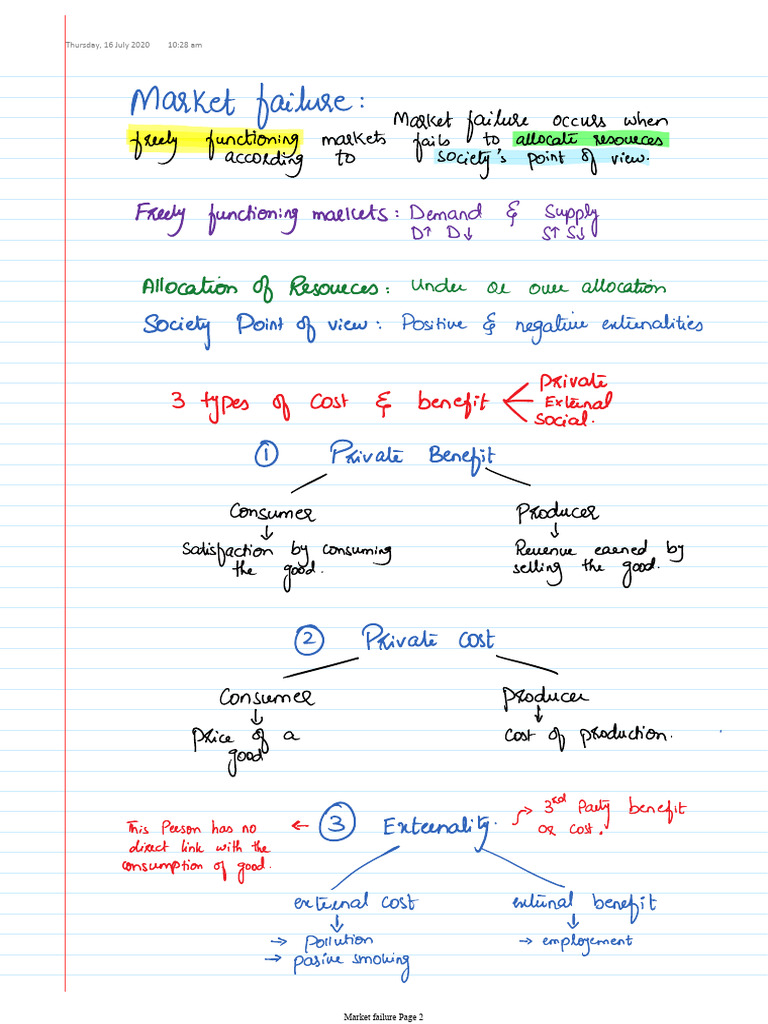 Thursday, 16 July 2020 10:28 am
Market failure:
Market failure occurs when
freely functioning markets fails to allocate resources
according to society's point of view.
Freely functioning markets: Demand & Supply
D↑ D↓ S↑ S↓
Allocation of Resources: Under or over allocation
Society Point of view: Positive & negative externalities
3 types of cost & benefit
Private
External
Social.
① Private Benefit
Consumer Producer
↓ ↓
Satisfaction by consuming Revenue earned by
the good. selling the good.
② Private cost
Consumer Producer
↓ ↓
Price of a cost of production.
good
③ Externality.
→ 3rd Party benefit
or cost.
← This Person has no
direct link with the
consumption of good.
external cost external benefit
↓ ↓
→ Pollution → employement
→ pasive smoking
Market failure Page 2